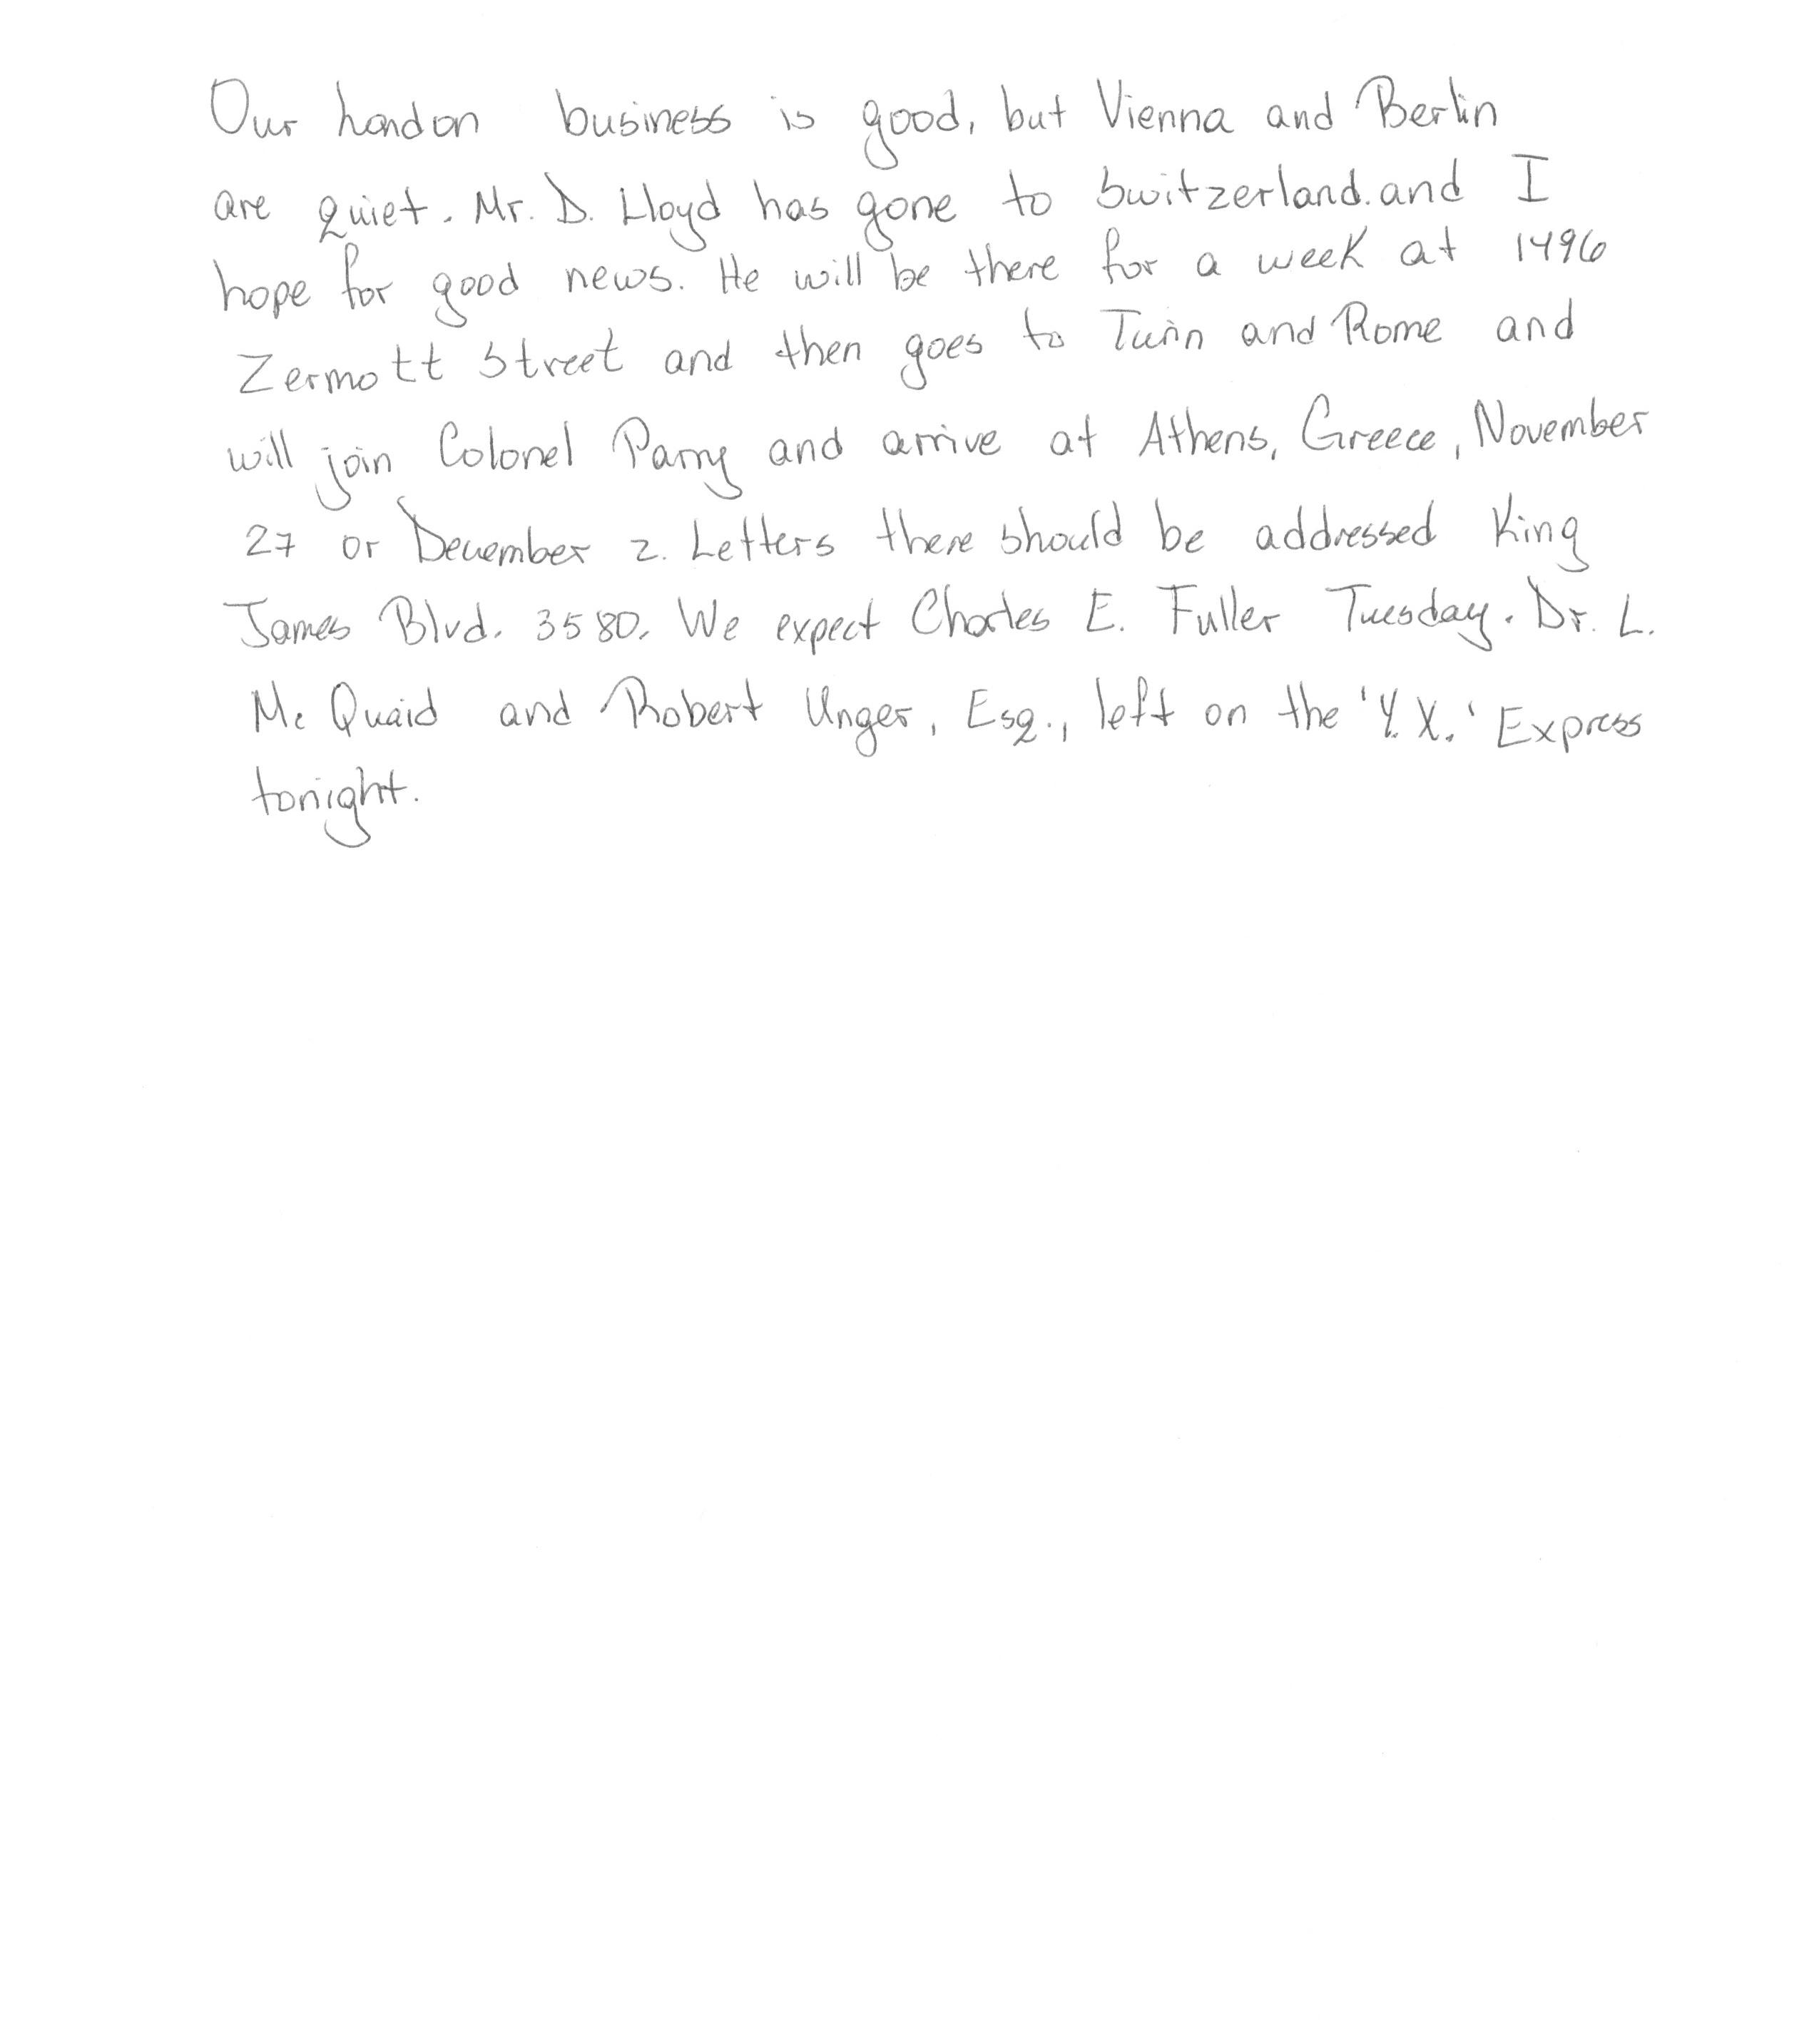 Our London business is good, but Vienna and Berlin
are quiet. Mr. D. Lloyd has gone to Switzerland. and I
hope for good news. He will be there for a week at 1496
Zermott Street and then goes to Turin and Rome and
will join Colonel Parry and arrive at Athens, Greece, November
27 or December 2. Letters there should be addressed King
James Blvd. 3580. We expect Charles E. Fuller Tuesday. Dr. L.
Mc Quaid and Robert Unger, Esq., left on the 'Y. X.' Express
tonight.